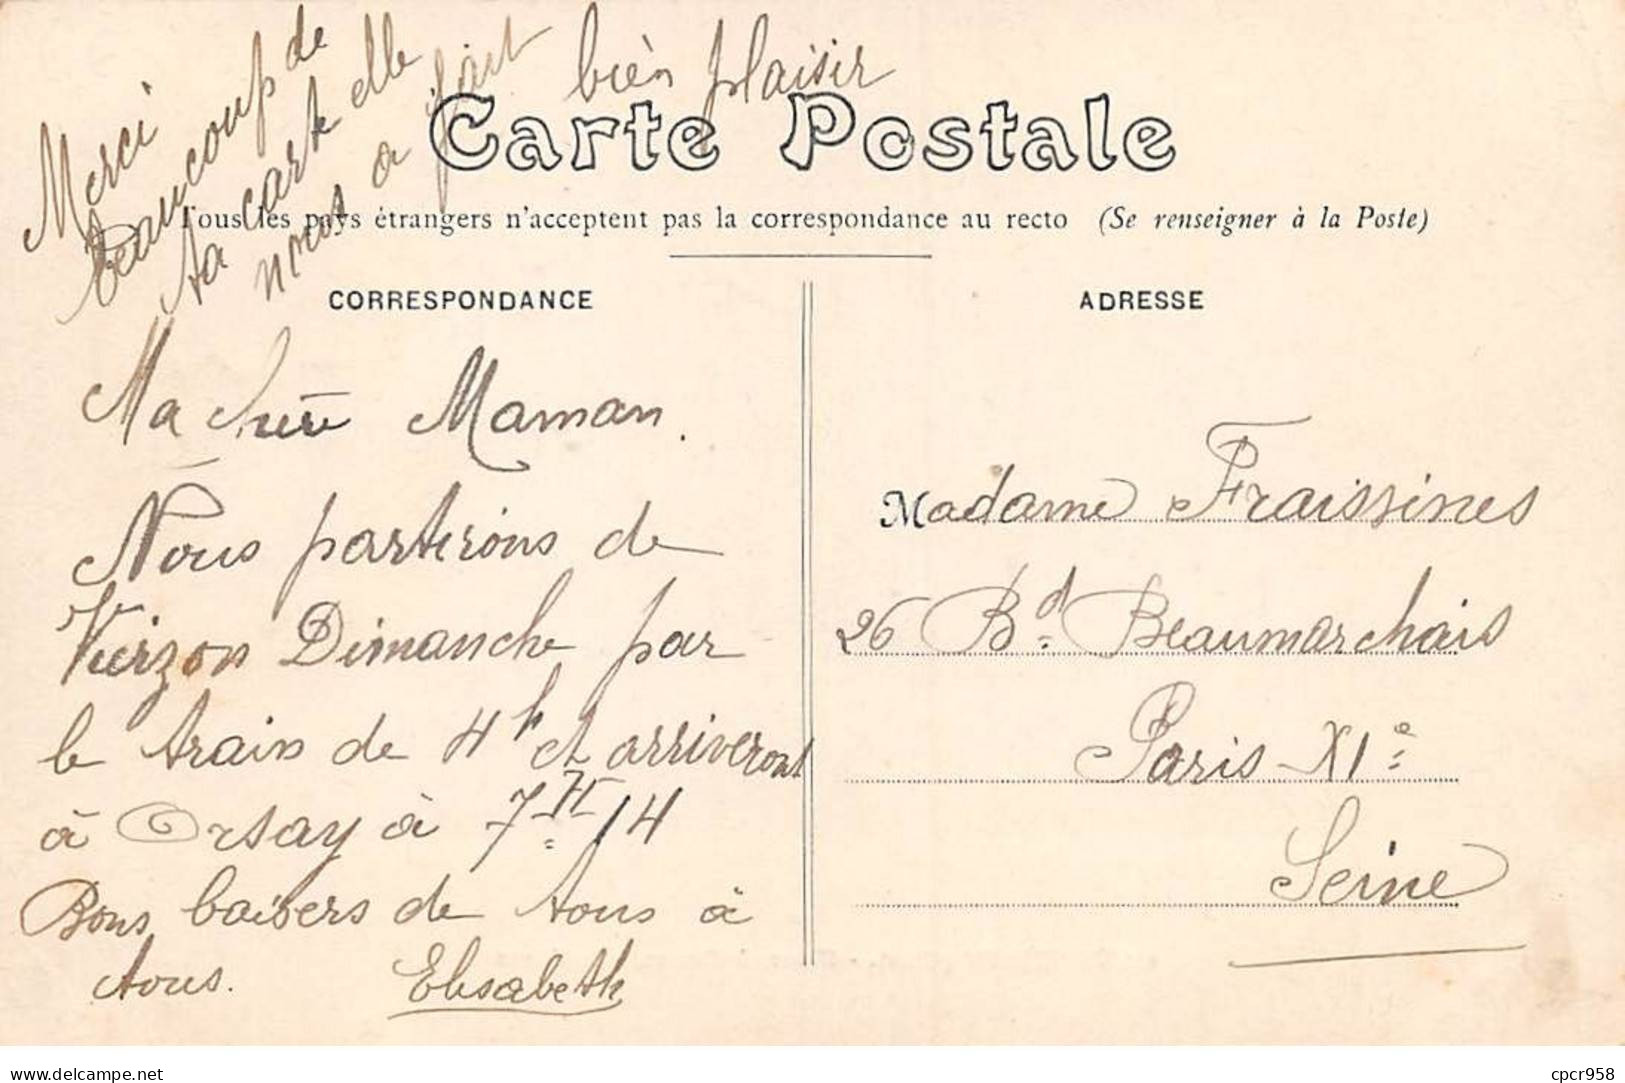 Merci
beaucoup de
ta carte elle
nous a fait bien plaisir
Carte Postale
Tous les pays étrangers n'acceptent pas la correspondance au recto (Se renseigner à la Poste)
CORRESPONDANCE
Ma chère Maman.
Nous partirons de
Vierzon Dimanche par
le train de 4h et arriveront
à Orsay à 7H 14
Bons baisers de tous à
tous. Elisabeth
ADRESSE
Madame Fraissines
26 Bd Beaumarchais
Paris XIe
Seine
www.delcampe.net
cpcr958